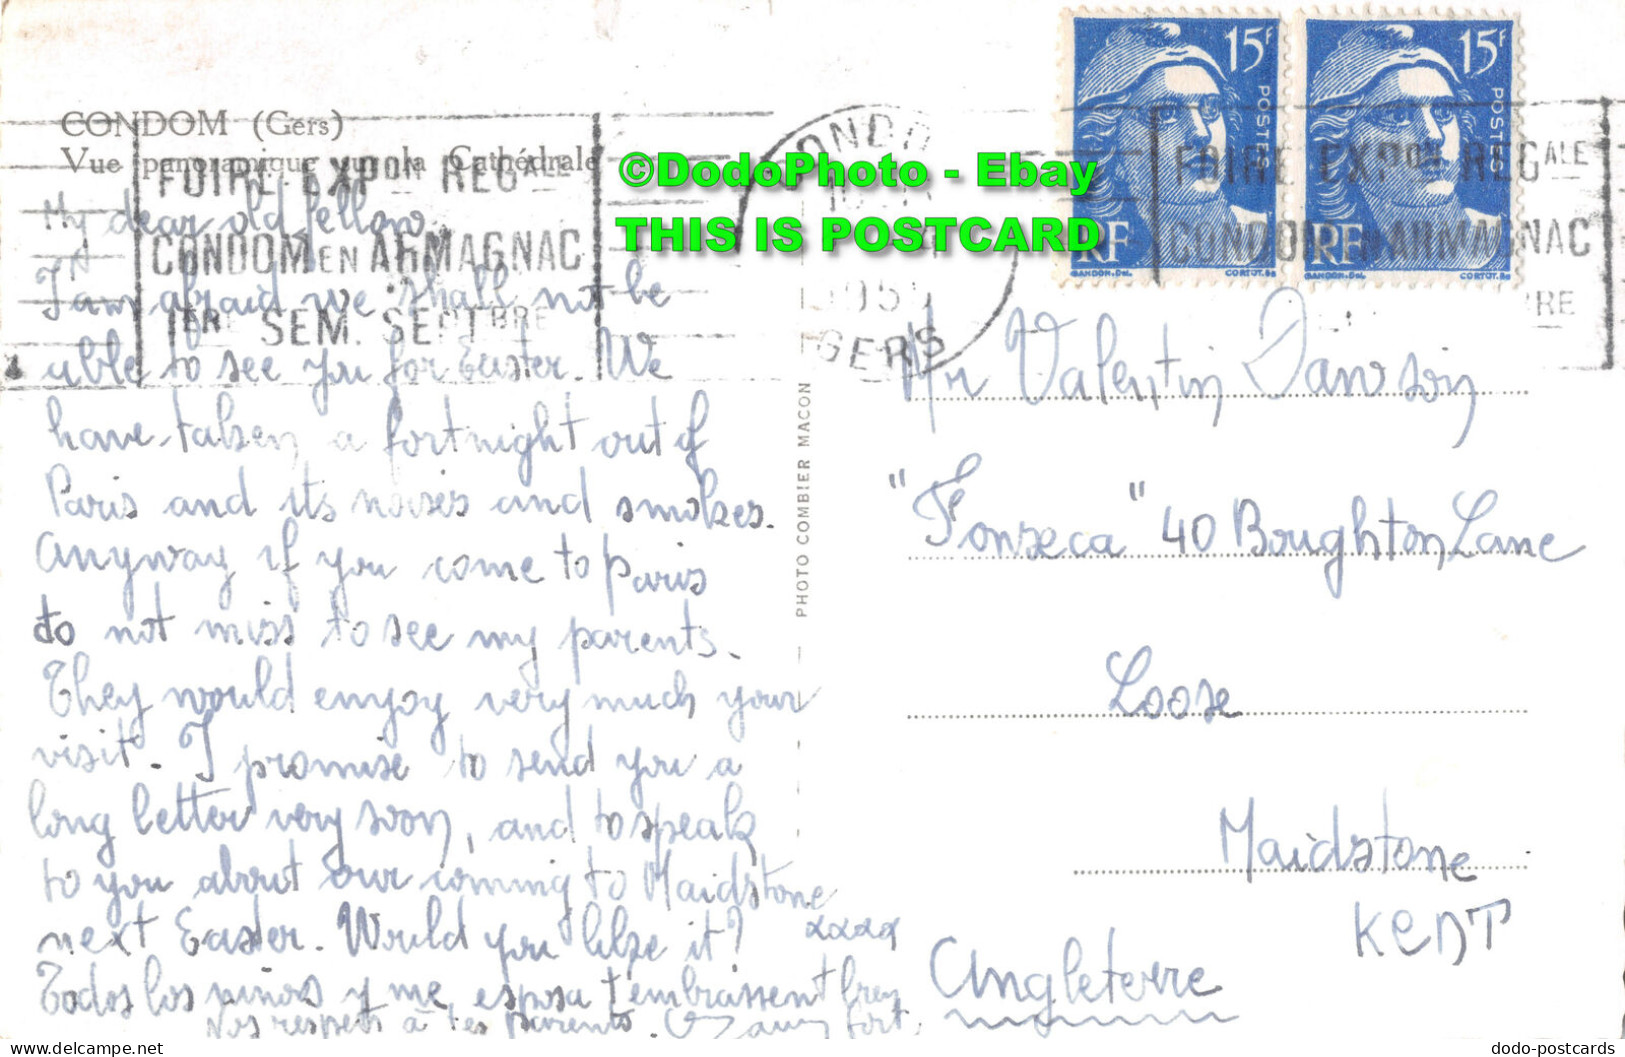 CONDOM (Gers)
Vue panoramique sur la Cathédrale
FOIRE EXPon REGALE
CONDOM EN ARMAGNAC
1ERE SEM. SEPTBRE
CONDOM
GERS
15F
POSTES
RF
GANDON.Del.
CORTOT.Sc
15F
POSTES
RF
GANDON.Del.
CORTOT.Sc
FOIRE EXPon REGALE
CONDOM EN ARMAGNAC
©DodoPhoto - Ebay
THIS IS POSTCARD
My dear old fellow.
I am afraid we shall not be
able to see you for Easter. We
have taken a fortnight out of
Paris and its noises and smokes.
Anyway if you come to Paris
do not miss to see my parents.
They would enjoy very much your
visit. I promise to send you a
long letter very soon, and to speak
to you about our coming to Maidstone
next Easter. Would you like it? xxxx
Todos los niños y me esposa t'embrassent
Nos respects à tes parents.
PHOTO COMBIER MACON
Mr Valentin Dawson
"Fonseca" 40 Boughton Lane
Loose
Maidstone
KENT
Angleterre
dodo-postcards